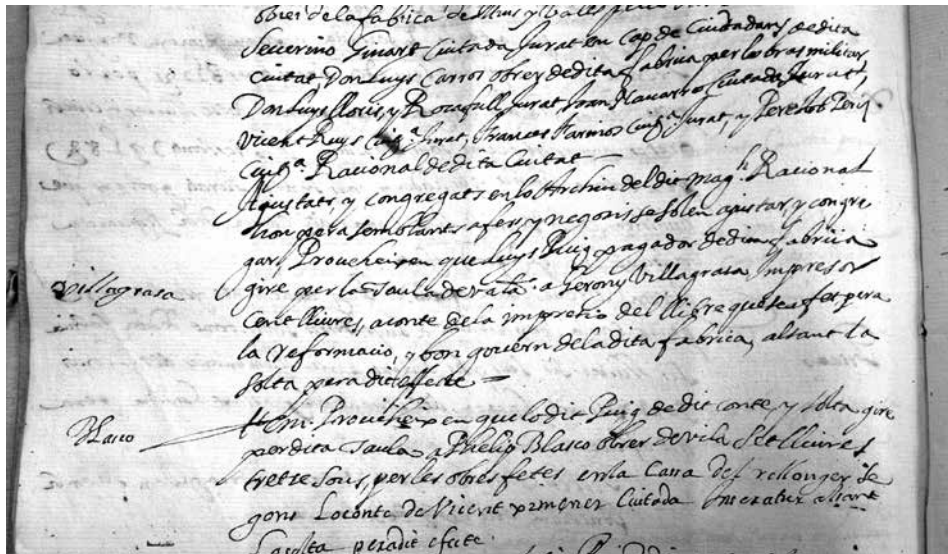 obrer de la fabrica de Murs y Valls
Severino Ginart Ciutada Jurat en Cap de Ciudadans de dita
Ciutat Don Luys Carros obrer de dita fabrica per lo bras militar
Don Luys lloris, y Rocafull Jurat Joan Navarro Ciutada Jurat,
Vicent Ruys Ciutª Jurat, Frances Ciutª Jurat, y
Ciutª Racional de dita Ciutat
Ajustats, y congregats en lo Archiu del dit magh Racional
hon pera semblants afers, y negocis se solen ajustar, y congre
gar, Proueheixen que Luys Puig pagador de dita fabrica
villagrasa
gire per la Taula de Valª a Gerony Villagrasa Impresor
Cent lliures, a conte de la impresio del llibre que se a fet pera
la reformacio, y bon govern de la dita fabrica, alsant la
solta pera dit effecte
Blasco
Itom. Proueheixen que lo dit Puig de dit conte, y solta gire
per dita Taula a Phelip Blasco obrer de vila Set lliures
tretze sous, per les obres fetes en la Casa del rellonger se
gons lo conte de Vicent ximener Ciutada alsant
la solta pera dit efecte.